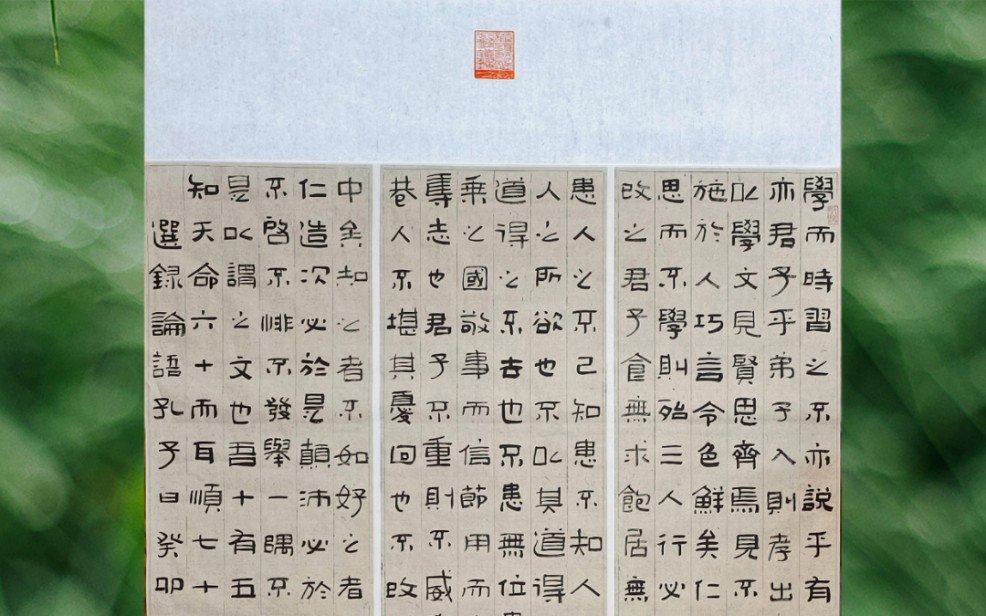 學而時習之不亦説乎有
亦君子乎弟子入則孝出
以學文見賢思齊焉見不
施於人巧言令色鮮矣仁
思而不學則殆三人行必
改之君子食無求飽居無
患人之不己知患不知人
人之所欲也不以其道得
道得之不去也不患無位
乘之國敬事而信節用而
奪志也君子不重則不威
巷人不堪其憂回也不改
中矣知之者不如好之者
仁造次必於是顛沛必於
不啓不悱不發舉一隅不
是以謂之文也吾十有五
知天命六十而耳順七十
選録論語孔子曰癸卯